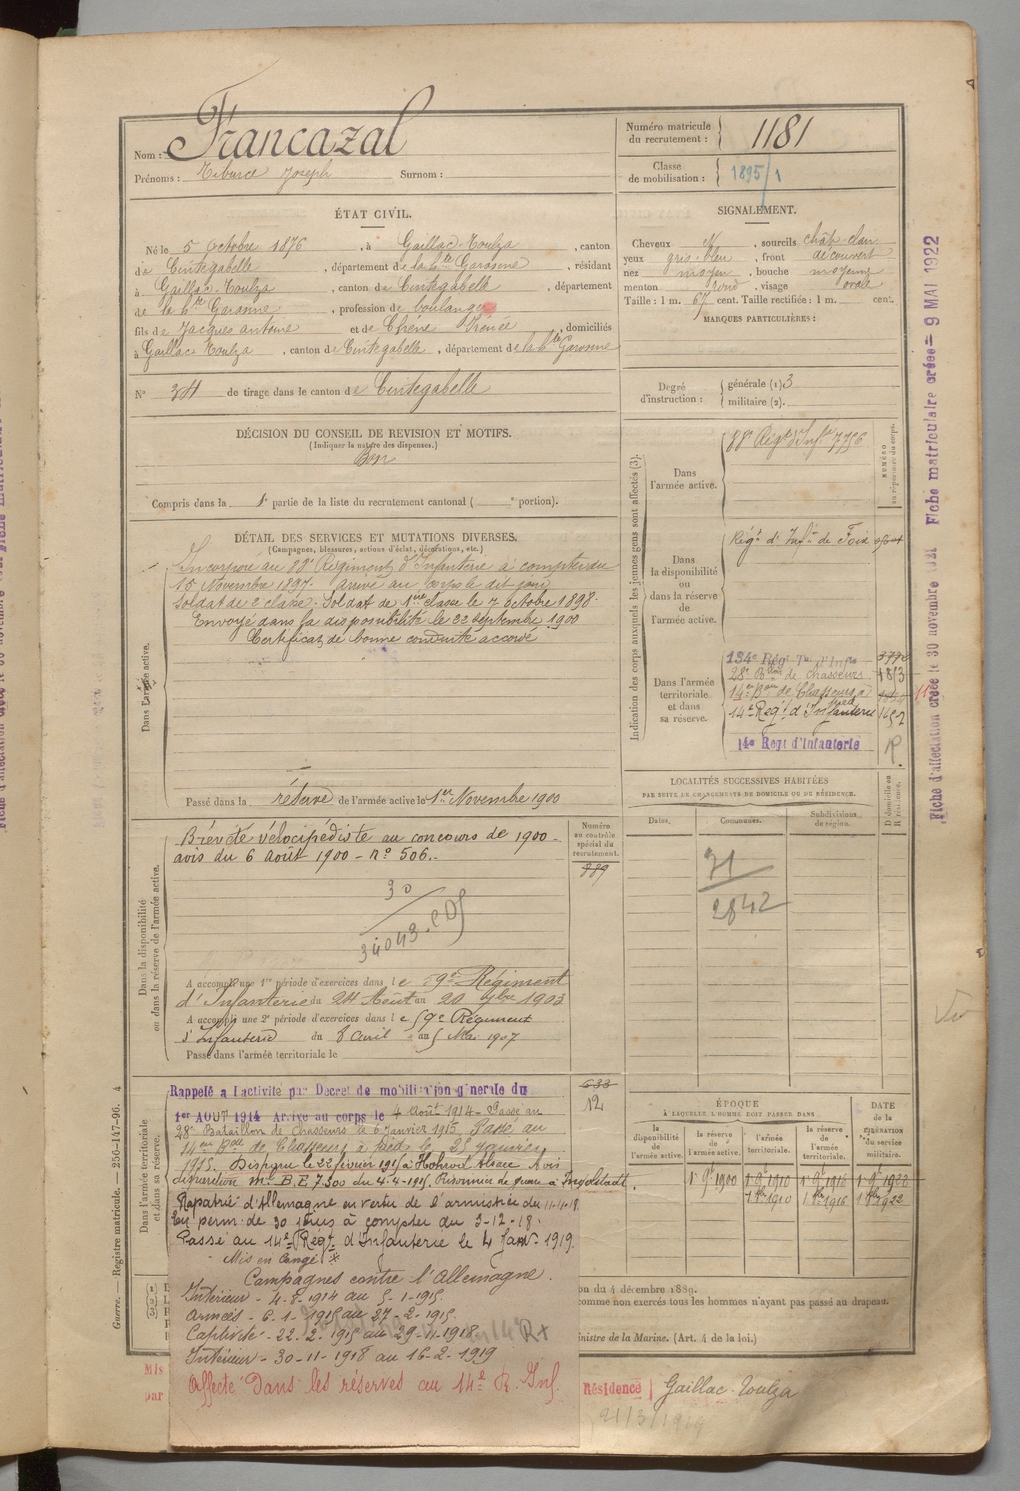 Nom : Francazal
Numéro matricule du recrutement : 1181
Prénoms : Tiburce Joseph Surnom :
Classe de mobilisation : 1895/1
ÉTAT CIVIL.
Né le 5 Octobre 1876, à Gaillac-Toulza, canton
de Cintegabelle, département de la Hte Garonne, résidant
à Gaillac-Toulza, canton de Cintegabelle, département
de la Hte Garonne, profession de boulanger
fils de Jacques Antoine et de, domiciliés
à Gaillac Toulza, canton de Cintegabelle, département de la Hte Garonne
N° 34 de tirage dans le canton de Cintegabelle
SIGNALEMENT.
Cheveux N, sourcils chât-clair
yeux gris-bleu, front découvert
nez moyen, bouche moyenne
menton rond, visage ovale
Taille : 1 m. 67 cent. Taille rectifiée : 1 m. cent.
MARQUES PARTICULIÈRES :
Degré d'instruction : générale (1) 3
militaire (2).
DÉCISION DU CONSEIL DE REVISION ET MOTIFS.
(Indiquer la nature des dispenses.)
Bon
Compris dans la 1e partie de la liste du recrutement cantonal ( e portion).
DÉTAIL DES SERVICES ET MUTATIONS DIVERSES.
(Campagnes, blessures, actions d'éclat, décorations, etc.)
Dans l'armée active.
Incorporé au 88e Régiment d'Infanterie à compter du
15 Novembre 1897. Arrivé au Corps le dit jour
Soldat de 2e classe. Soldat de 1ère classe le 7 octobre 1898.
Envoyé dans la disponibilité le 22 septembre 1900
Certificat de bonne conduite accordé
Passé dans la réserve de l'armée active le 1er Novembre 1900
Indication des corps auxquels les jeunes gens sont affectés (3).
NUMÉRO au répertoire du corps.
Dans l'armée active.
88e Régt d'Infie 7756
Dans la disponibilité ou dans la réserve de l'armée active.
Régt d'Infie de Foix
Dans l'armée territoriale et dans sa réserve.
134e Régt Ter. d'Infie
28e Bon de Chasseurs 1813
14e Bon de Chasseurs à pied
14e Régt d'Infanterie 1652
14e Regt d'Infanterie R.
LOCALITÉS SUCCESSIVES HABITÉES
PAR SUITE DE CHANGEMENTS DE DOMICILE OU DE RÉSIDENCE.
Dates. Communes. Subdivisions de région. D domicile ou R résidence.
31
2842
Numéro au contrôle spécial du recrutement.
989
Dans la disponibilité ou dans la réserve de l'armée active.
Brêveté vélocipédiste au concours de 1900 -
avis du 6 Août 1900 - n° 506.
30
34043
A accompli une 1re période d'exercices dans le 59e Régiment
d'Infanterie du 24 Août au 20 7bre 1903
A accompli une 2e période d'exercices dans le 59e Régiment
d'Infanterie du 8 Avril au 5 Mai 1907
Passé dans l'armée territoriale le
633
12
Dans l'armée territoriale et dans sa réserve.
Rappelé à l'activité par Decret de mobilisation générale du
1er AOUT 1914 Arrivé au corps le 4 Août 1914 - Passé au
28e Bataillon de Chasseurs le 6 janvier 1915. Passé au
14em Bon de Chasseurs à pieds le 25 janvier
1915. Disparu le 22 février 1915 à Hohrod Alsace. Avis
disparition m. B.E 7.300 du 4.4.1915. Prisonnier de guerre à Freydstadt.
Rapatrié d'Allemagne en vertu de l'armistice du 11-11-18.
En perm. de 30 jours à compter du 3-12-18.
Passé au 14e Régt d'Infanterie le 4 Janv. 1919.
Mis en Congé
Campagnes contre l'Allemagne.
Intérieur - 4-8-1914 au 5-1-1915
Armées - 6-1-1915 au 27-2-1915
Captivité - 22-2-1915 au 29-11-1918
Intérieur - 30-11-1918 au 16-2-1919
Affecté dans les réserves au 14e R. Inf.
ÉPOQUE
À LAQUELLE L'HOMME DOIT PASSER DANS
la disponibilité de l'armée active. la réserve de l'armée active. l'armée territoriale. la réserve de l'armée territoriale.
DATE de la LIBÉRATION du service militaire.
1er 9e 1900 1er 9e 1910 1er 9e 1916 1er 9e 1922
1er 8bre 1910 1er 8bre 1916 1er 8bre 1922
on du 4 décembre 1889.
comme non exercés tous les hommes n'ayant pas passé au drapeau.
inistre de la Marine. (Art. 4 de la loi.)
Mis
par
Résidence Gaillac-Toulza
21/3/1919
Guerre. — Registre matricule. — 250-147-96. 4
Fiche d'affectation créée le 30 novembre 1921 Fiche matriculaire créée = 9 MAI 1922